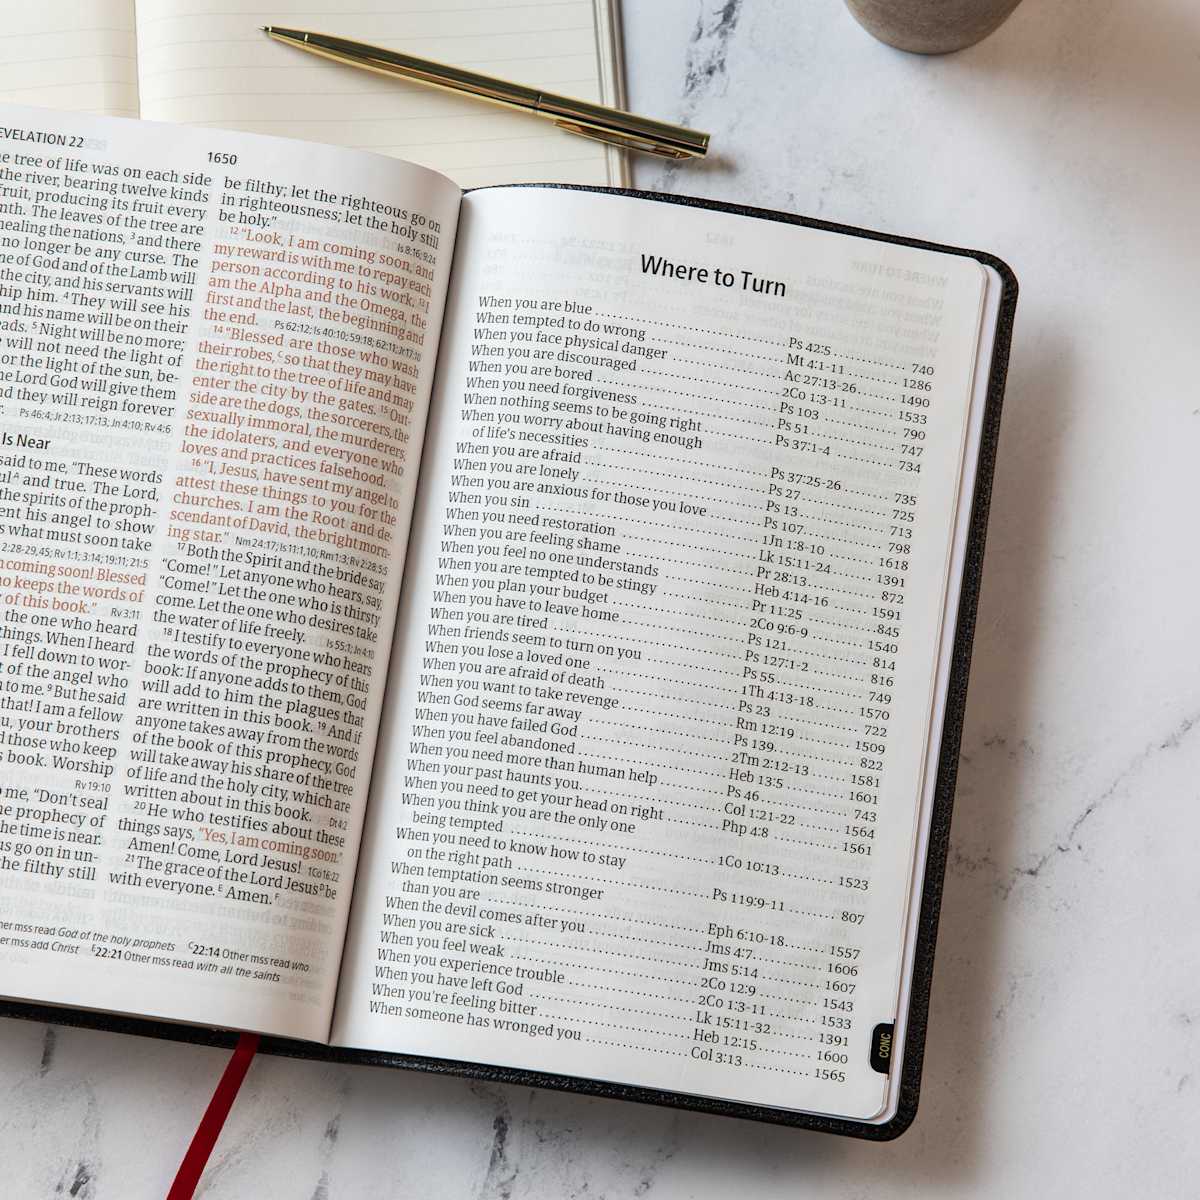 EVELATION 22
1650
e tree of life was on each side
the river, bearing twelve kinds
fruit, producing its fruit every
nth. The leaves of the tree are
healing the nations, 3 and there
no longer be any curse. The
ne of God and of the Lamb will
the city, and his servants will
hip him. 4 They will see his
and his name will be on their
eads. 5 Night will be no more;
will not need the light of
or the light of the sun, be-
he Lord God will give them
nd they will reign forever
Ps 46:4; Jr 2:13; 17:13; Jn 4:10; Rv 4:6
Is Near
said to me, "These words
ul^A and true. The Lord,
the spirits of the proph-
ent his angel to show
s what must soon take
2:28-29,45; Rv 1:1; 3:14; 19:11; 21:5
n coming soon! Blessed
ho keeps the words of
y of this book."
Rv 3:11
the one who heard
things. When I heard
I fell down to wor-
t of the angel who
n to me. 9 But he said
that! I am a fellow
u, your brothers
d those who keep
s book. Worship
Rv 19:10
o me, "Don't seal
he prophecy of
he time is near.
us go on in un-
the filthy still
be filthy; let the righteous go on
in righteousness; let the holy still
be holy."
Is 8:16; 9:24
12 "Look, I am coming soon, and
my reward is with me to repay each
person according to his work. 13 I
am the Alpha and the Omega, the
first and the last, the beginning and
the end.
Ps 62:12; Is 40:10; 59:18; 62:11; Jr 17:10
14 "Blessed are those who wash
their robes,^C so that they may have
the right to the tree of life and may
enter the city by the gates. 15 Out-
side are the dogs, the sorcerers, the
sexually immoral, the murderers,
the idolaters, and everyone who
loves and practices falsehood.
16 "I, Jesus, have sent my angel to
attest these things to you for the
churches. I am the Root and de-
scendant of David, the bright morn-
ing star."
Nm 24:17; Is 11:1,10; Rm 1:3; Rv 2:28; 5:5
17 Both the Spirit and the bride say,
"Come!" Let anyone who hears, say,
"Come!" Let the one who is thirsty
come. Let the one who desires take
the water of life freely.
Is 55:1; Jn 4:10
18 I testify to everyone who hears
the words of the prophecy of this
book: If anyone adds to them, God
will add to him the plagues that
are written in this book. 19 And if
anyone takes away from the words
of the book of this prophecy, God
will take away his share of the tree
of life and the holy city, which are
written about in this book.
Dt 4:2
20 He who testifies about these
things says, "Yes, I am coming soon."
Amen! Come, Lord Jesus!
1Co 16:22
21 The grace of the Lord Jesus^D be
with everyone.^E Amen.^F
ther mss read God of the holy prophets C22:14 Other mss read who
er mss add Christ E22:21 Other mss read with all the saints
Where to Turn
When you are blue Ps 42:5 740
When tempted to do wrong Mt 4:1-11 1286
When you face physical danger Ac 27:13-26 1490
When you are discouraged 2Co 1:3-11 1533
When you are bored Ps 103 790
When you need forgiveness Ps 51 747
When nothing seems to be going right Ps 37:1-4 734
When you worry about having enough
of life's necessities Ps 37:25-26 735
When you are afraid Ps 27 725
When you are lonely Ps 13 713
When you are anxious for those you love Ps 107 798
When you sin 1Jn 1:8-10 1618
When you need restoration Lk 15:11-24 1391
When you are feeling shame Pr 28:13 872
When you feel no one understands Heb 4:14-16 1591
When you are tempted to be stingy Pr 11:25 845
When you plan your budget 2Co 9:6-9 1540
When you have to leave home Ps 121 814
When you are tired Ps 127:1-2 816
When friends seem to turn on you Ps 55 749
When you lose a loved one 1Th 4:13-18 1570
When you are afraid of death Ps 23 722
When you want to take revenge Rm 12:19 1509
When God seems far away Ps 139 822
When you have failed God 2Tm 2:12-13 1581
When you feel abandoned Heb 13:5 1601
When you need more than human help Ps 46 743
When your past haunts you Col 1:21-22 1564
When you need to get your head on right Php 4:8 1561
When you think you are the only one
being tempted 1Co 10:13 1523
When you need to know how to stay
on the right path Ps 119:9-11 807
When temptation seems stronger
than you are Eph 6:10-18 1557
When the devil comes after you Jms 4:7 1606
When you are sick Jms 5:14 1607
When you feel weak 2Co 12:9 1543
When you experience trouble 2Co 1:3-11 1533
When you have left God Lk 15:11-32 1391
When you're feeling bitter Heb 12:15 1600
When someone has wronged you Col 3:13 1565
CONC